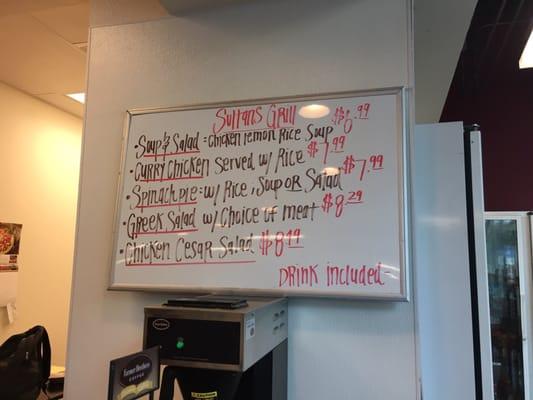 Sultans Grill
• Soup & Salad = Chicken lemon Rice Soup $6.99
• CURRY Chicken Served w/ Rice $7.99
• Spinach pie = w/ Rice, Soup OR Salad $7.99
• Greek Salad w/ Choice of meat $8.29
• Chicken Cesar Salad $8.49
DRINK included-
Farmer Brothers
COFFEE
CAUTION